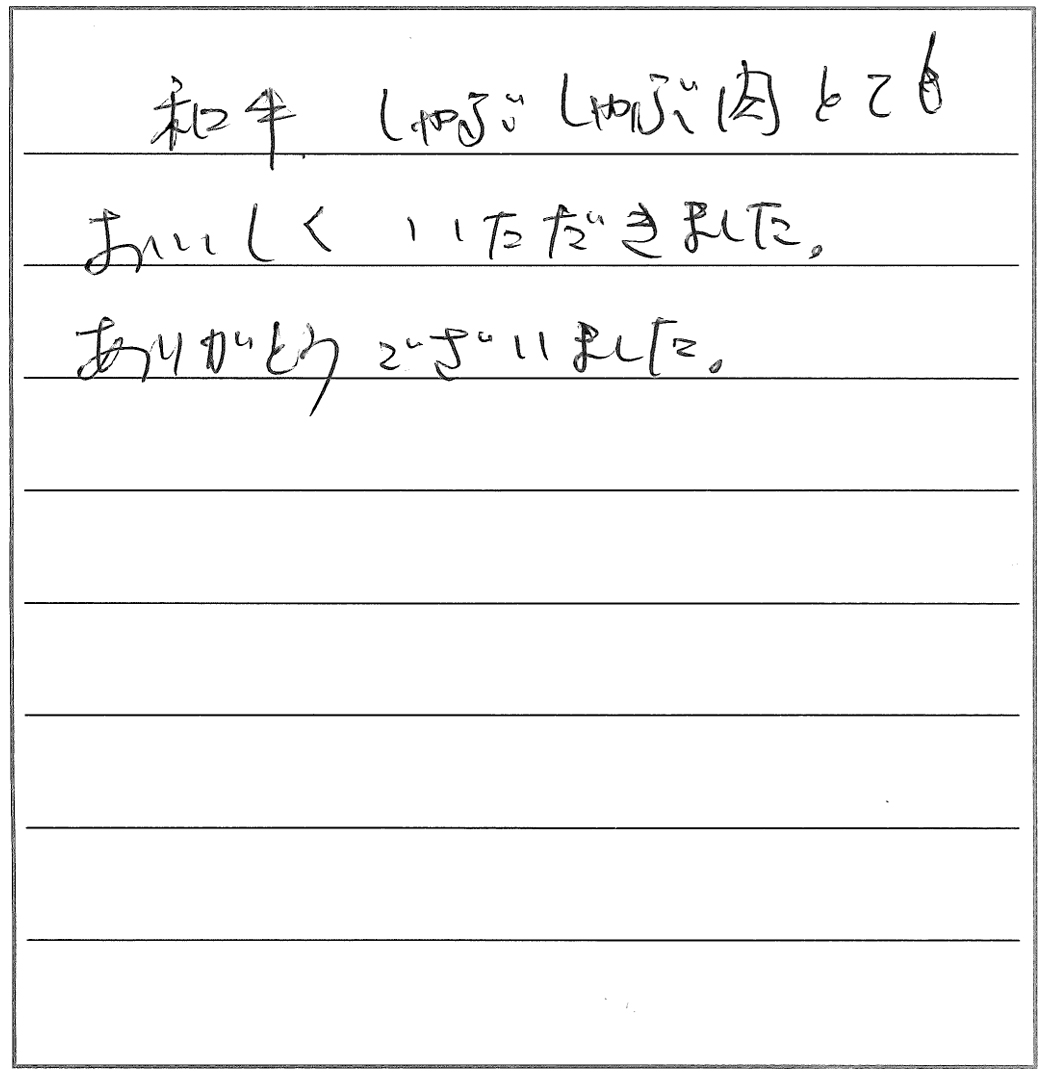 和牛 しゃぶしゃぶ肉とても
おいしく いただきました。
ありがとうございました。